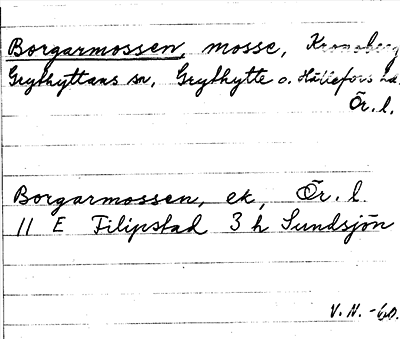 Borgarmossen, mosse, Kronoberg
Grythyttans sn, Grythytte o. Hällefors hd.
Ör. l.
Borgarmossen, ek, Ör. l.
11 E Filipstad 3 h Sundsjön
V. N. -60.